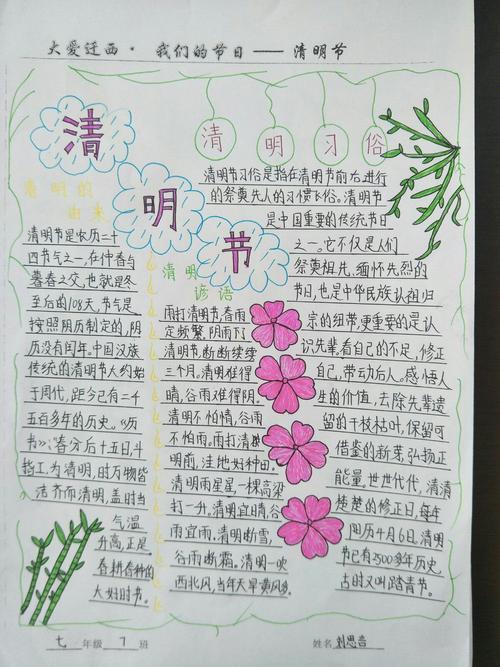 大爱迁西·我们的节日——清明节
清
明
节
清明习俗
清明节习俗是指在清明节前后进行
的祭奠先人的习惯飞俗。清明节
是中国重要的传统节日
之一。它不仅是人们
祭奠祖先,缅怀先烈的
节日,也是中华民族认祖归
宗的纽带,更重要的是认
识先辈看自己的不足,修正
自己,带动后人。感悟人
生的价值,去除先辈遗
留的干枝枯叶,保留可
借鉴的新芽,弘扬正
能量,世世代代,清清
楚楚的修正日,每年
阳历4月6日,清明
节已有2500多年历史
古时又叫踏青节。
清明的
由来
清明节是农历二十
四节气之一,在仲春与
暮春之交,也就是冬
至后的108天,节气是
按照阴历制定的,阴
历没有闰年。中国汉族
传统的清明节大约始
于周代,距今已有二千
五百多年的历史。《历
书》:春分后十五日,斗
指丁,为清明,时万物皆
洁齐而清明,盖时当
气温
升高,正是
春耕春种的
大好时节。
清明
谚语
雨打清明节,春雨
定频繁,阴雨下
清明节,断断续续
三个月。清明难得
晴,谷雨难得阴。
清明不怕晴,谷雨
不怕雨。雨打清明
明前,洼地好种田。
清明雨星星,一棵高粱
打一升,清明宜晴,谷
雨宜雨,清明断雪
谷雨断霜。清明一吹
西北风,当年天旱黄风多
七年级7班
姓名